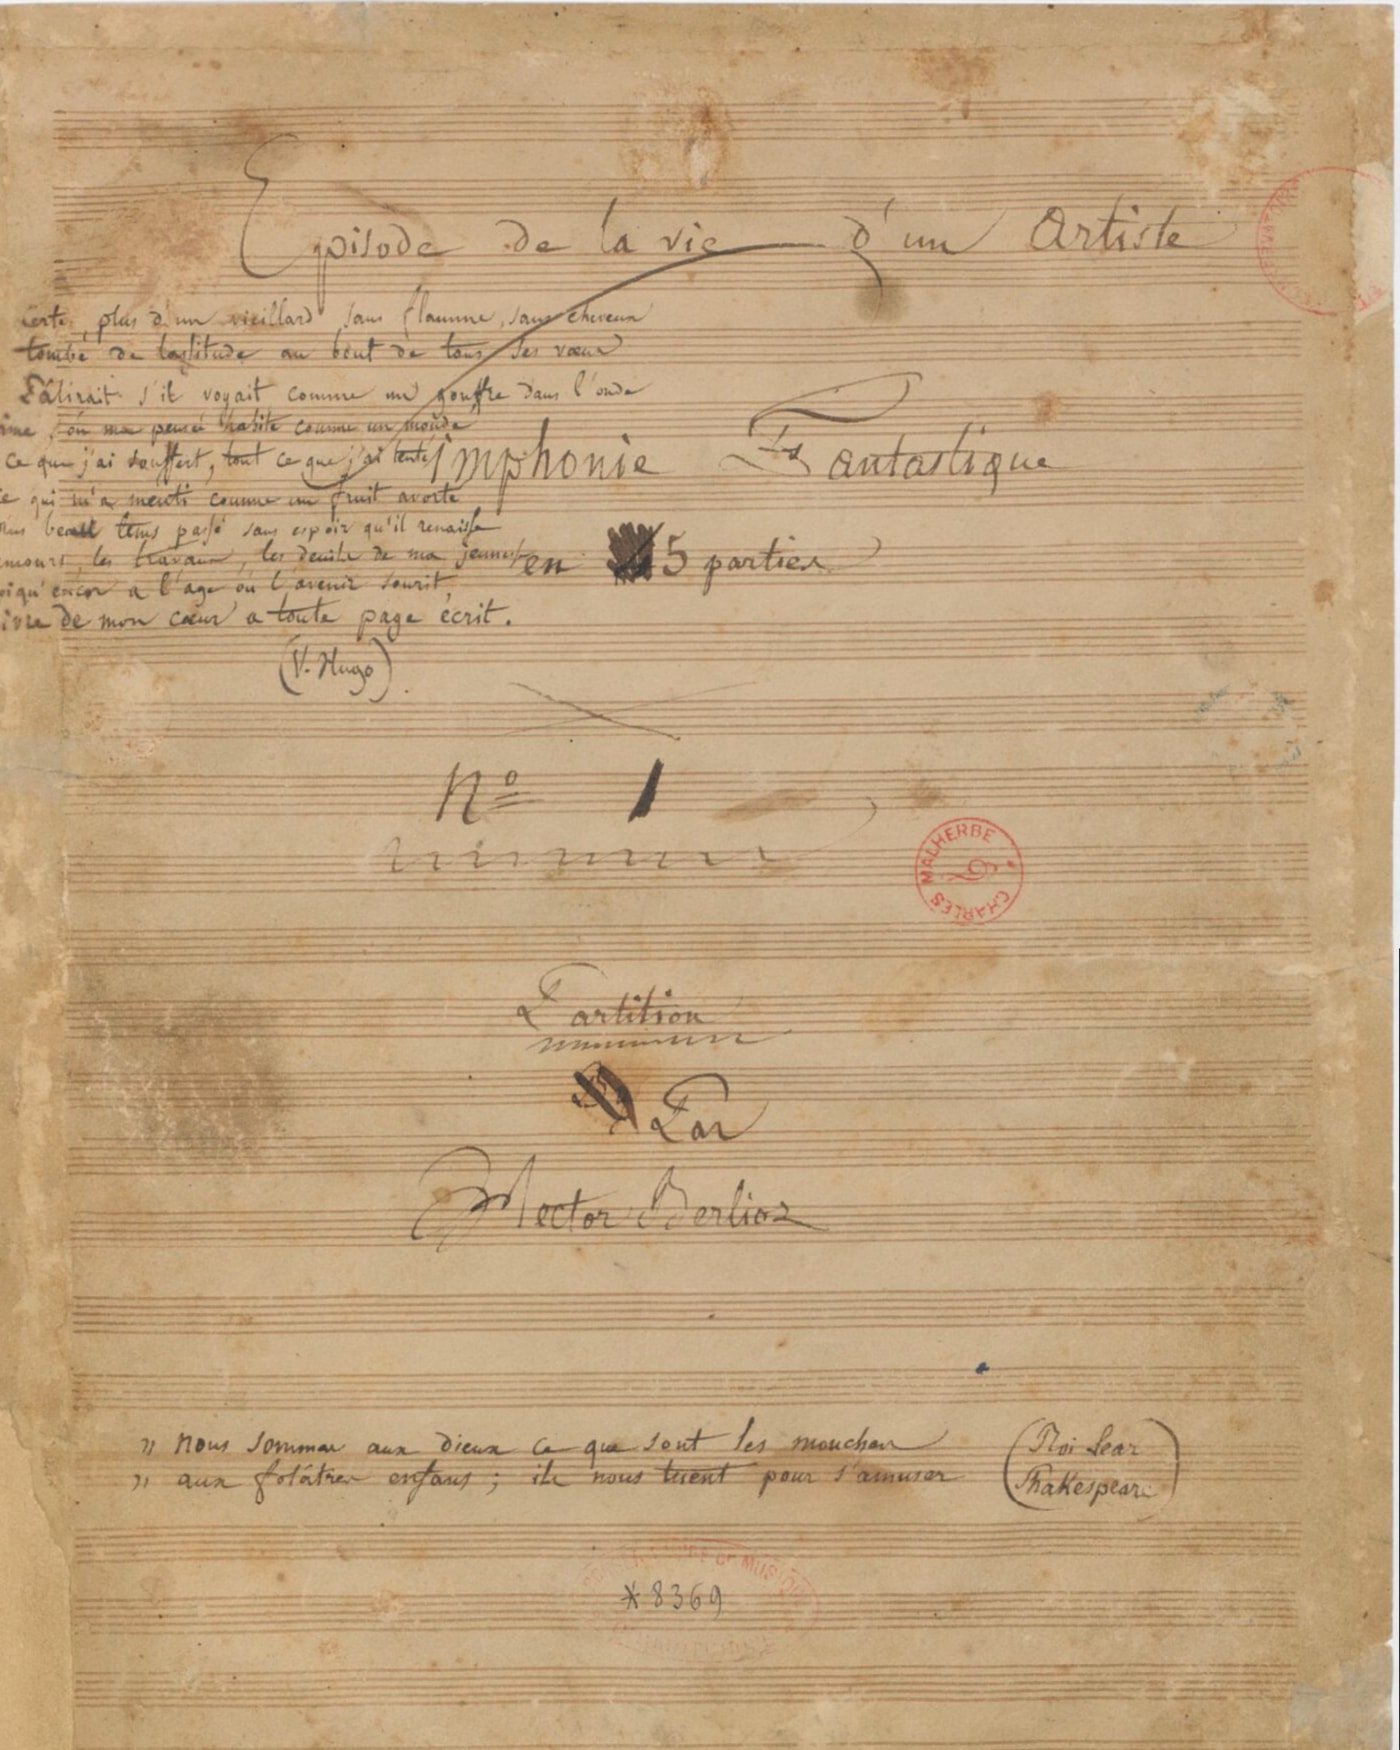 Episode de la vie d'un Artiste
certe, plus d'un vieillard sans flamme, sans cheveux
tombé de lassitude au bout de tous ses vœux
Pâlirait s'il voyait comme un gouffre dans l'onde
âme, où ma pensée habite comme un monde
ce que j'ai souffert, tout ce que j'ai tenté
ce qui m'a menti comme un fruit avorté
plus beau tems passé sans espoir qu'il renaisse
amours, les travaux, les deuils de ma jeunesse
oiqu'encor a l'age où l'avenir sourit,
ivre de mon cœur a toute page écrit.
(V. Hugo)
Simphonie Fantastique
en 5 parties
N° 1
MALHERBE
CHARLES
Partition
Par
Hector Berlioz
" nous sommes aux dieux ce que sont les mouches
" aux folâtres enfans ; ils nous tuent pour s'amuser
(Roi Lear
Shakespeare)
*8369